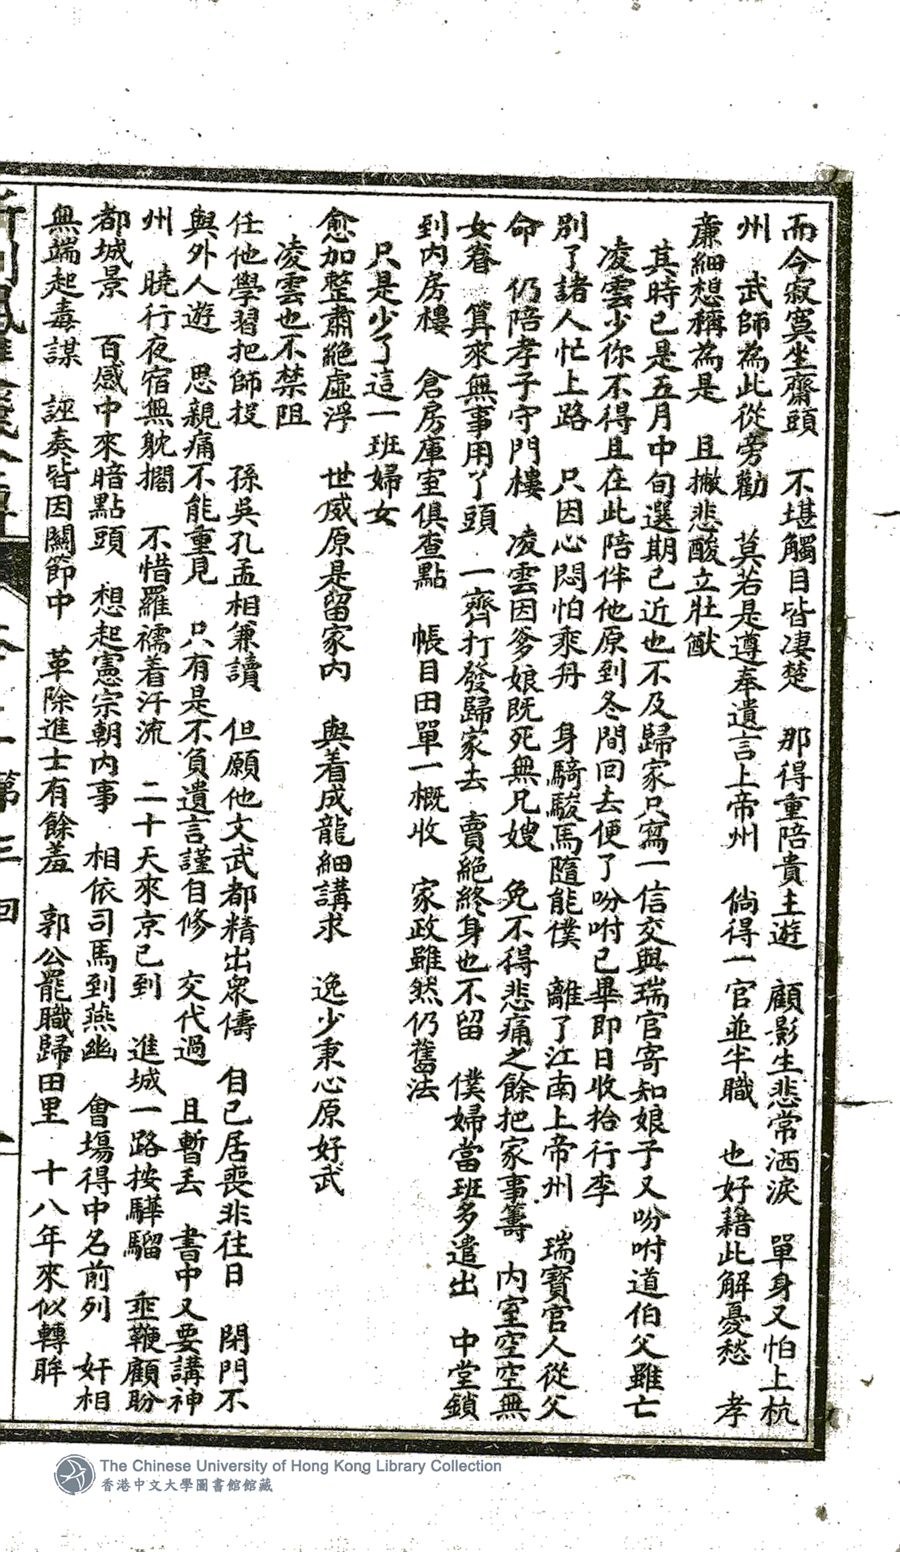 而今寂寞坐齋頭　不堪觸目皆凄楚　那得重陪貴主遊　顧影生悲常洒淚　單身又怕上杭
州　武師為此從旁勸　莫若是遵奉遺言上帝州　倘得一官並半職　也好藉此解憂愁　孝
亷細想稱為是　且撇悲酸立壯猷
其時已是五月中旬選期已近也不及歸家只寫一信交與瑞官寄知娘子又吩咐道伯父雖亡
凌雲少你不得且在此陪伴他原到冬間回去便了吩咐已畢即日收拾行李
別了諸人忙上路　只因心悶怕乘舟　身騎駿馬隨能僕　離了江南上帝州　瑞寳官人從父
命　仍陪孝子守門樓　凌雲因爹娘既死無兄嫂　免不得悲痛之餘把家事籌　內室空空無
女眷　算來無事用丫頭　一齊打發歸家去　賣絕終身也不留　僕婦當班多遣出　中堂鎖
到內房樓　倉房庫室俱查點　帳目田單一概收　家政雖然仍舊法
只是少了這一班婦女
愈加整肅絕虛浮　世威原是留家內　與着成龍細講求　逸少秉心原好武
凌雲也不禁阻
任他學習把師投　孫吳孔孟相兼讀　但願他文武都精出衆儔　自已居喪非往日　閉門不
與外人遊　思親痛不能重見　只有是不負遺言謹自修　交代過　且暫丟　書中又要講神
州　曉行夜宿無躭擱　不惜羅襦着汗流　二十天來京已到　進城一路按驊騮　垂鞭顧盼
都城景　百感中來暗點頭　想起憲宗朝內事　相依司馬到燕幽　會塲得中名前列　奸相
無端起毒謀　誣奏皆因關節中　革除進士有餘羞　郭公罷職歸田里　十八年來似轉眸
第三回
The Chinese University of Hong Kong Library Collection
香港中文大學圖書館館藏